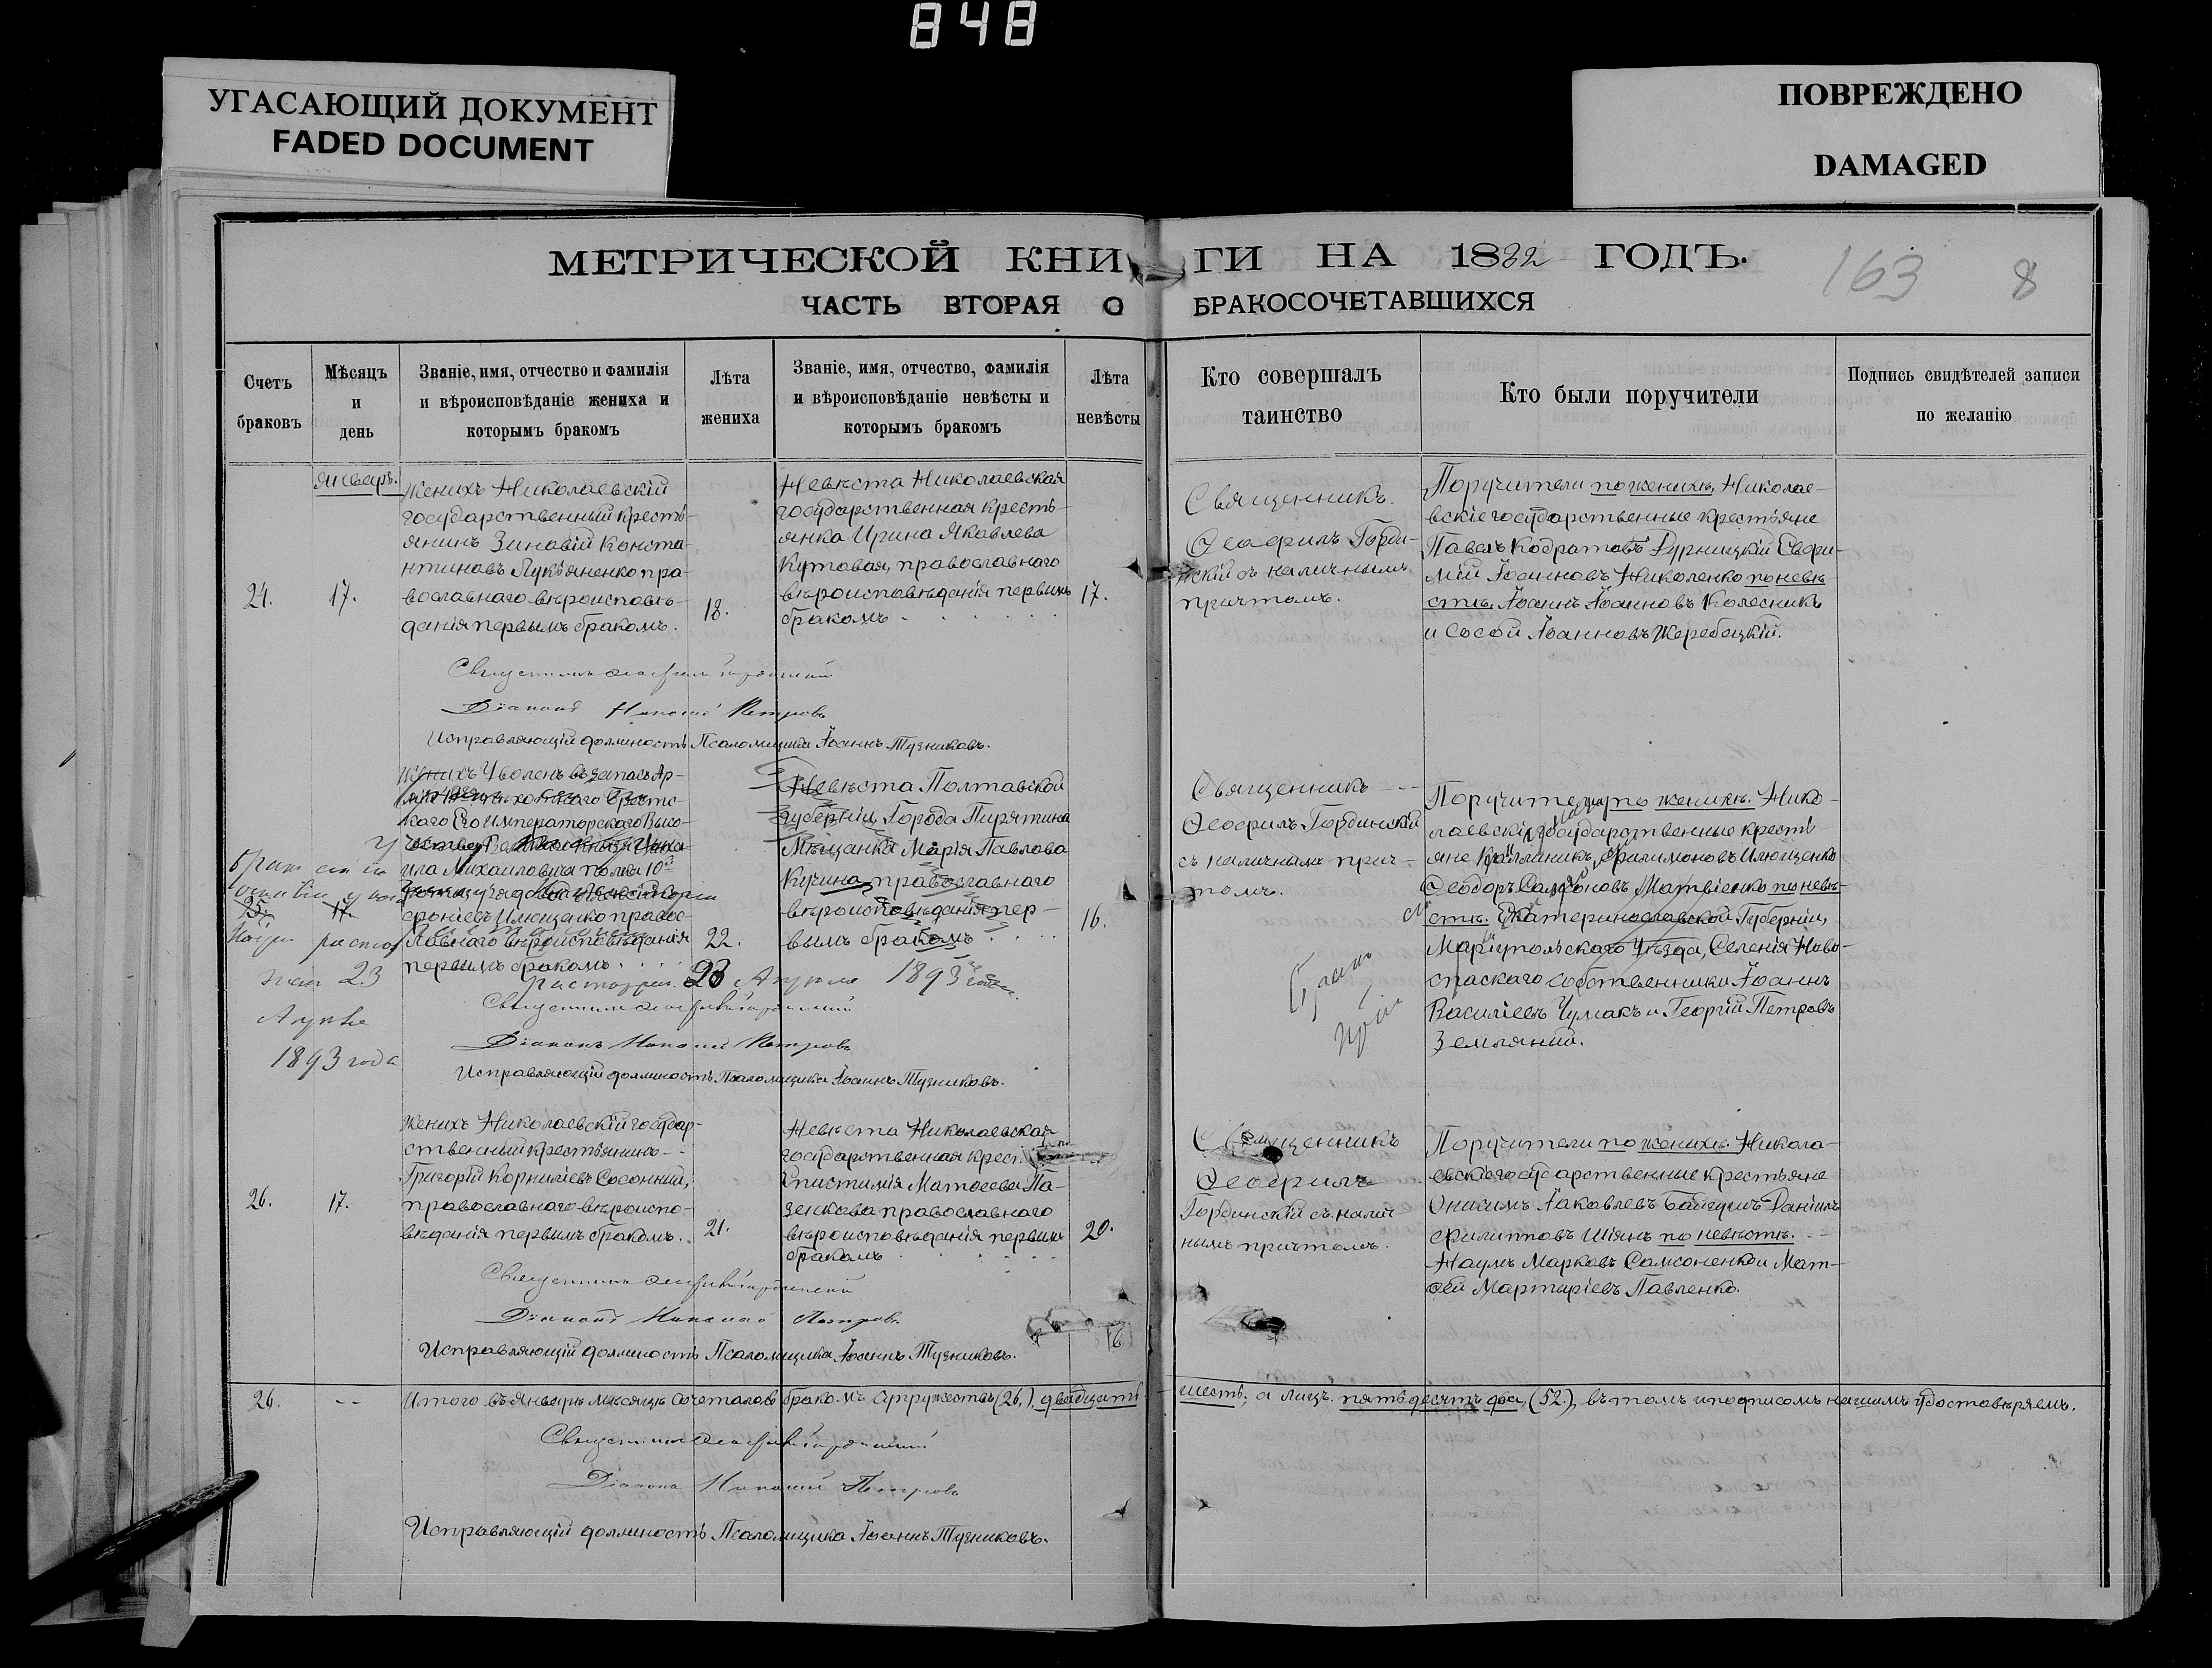 848
УГАСАЮЩИЙ ДОКУМЕНТ
FADED DOCUMENT
ПОВРЕЖДЕНО
DAMAGED
МЕТРИЧЕСКОЙ КНИГИ НА 1882 ГОДЪ.
163 8
ЧАСТЬ ВТОРАЯ О БРАКОСОЧЕТАВШИХСЯ
Счетъ
браковъ
Мѣсяцъ
и
день
Званіе, имя, отчество и фамилія
и вѣроисповѣданіе жениха и
которымъ бракомъ
Лѣта
жениха
Званіе, имя, отчество, фамилія
и вѣроисповѣданіе невѣсты и
которымъ бракомъ
Лѣта
невѣсты
Кто совершалъ
таинство
Кто были поручители
Подпись свидѣтелей записи
по желанію
Январь.
24.
17.
Женихъ Николаевскій
государственный кресть-
янинъ Зиновій Конста-
нтиновъ Лукьяненко пра-
вославнаго вѣроисповѣ-
данія первымъ бракомъ.
18.
Невѣста Николаевская
государственная кресть-
янка Ирина Яковлева
Кутовая, православнаго
вѣроисповѣданія первымъ
бракомъ
17.
Священникъ
Ѳеофилъ Горди-
нскій съ наличнымъ
причтомъ.
Поручители по женихѣ, Николае-
вскіе государственные крестьяне
Павелъ Кодратовъ Дурницкій Евфи-
мій Іоанновъ Николенко по невѣ
стѣ. Іоаннъ Іоанновъ Колесникъ
и Сосой Іоанновъ Жеребецкій.
Священникъ Ѳеофилъ Гординскій
Діаконъ Петровъ
Исправляющій должность Псаломщика Іоаннъ Тузниковъ.
17.
Женихъ Уволенъ въ запасъ Ар-
міи
каго Его Императорскаго Высо-
чества Великаго Князя Миха-
ила Михаиловича полка 10й
Илющенко правос-
лавнаго вѣроисповѣданія
первымъ бракомъ
22.
Невѣста Полтавской
губерніи, Города Пирятина
Мѣщанка Марія Павлова
Кучина, православнаго
вѣроисповѣданія пер-
вымъ бракомъ
16.
Священникъ
Ѳеофилъ Гординскій
съ наличнымъ прич-
томъ.
Поручители по женихѣ. Нико-
лаевскіе государственные кресть
яне Филимоновъ Илющенко
Ѳеодоръ Самсоновъ Матвіенко по невѣ-
стѣ. Екатеринославской Губерніи,
Маріупольскаго Уѣзда, Селенія Ново-
спаскаго собственники Іоаннъ
Василіевъ Чумакъ и Георгій Петровъ
Землянки.
23
Апрѣля
1893 года
23 Апрѣля 1893 года.
Священникъ Ѳеофилъ Гординскій
Діаконъ Петровъ
Исправляющій должность Псаломщика Іоаннъ Тузниковъ.
26.
17.
Женихъ Николаевскій государ-
ственный крестьянинъ
Григорій Корниліевъ Сосонний,
православнаго вѣроиспо-
вѣданія первымъ бракомъ.
21.
Невѣста Николаевская
государственная крест.
Епистимія Матѳеева Па-
зенкова православнаго
вѣроисповѣданія первымъ
бракомъ
20.
Священникъ
Ѳеофилъ
Гординскій съ налич
нымъ причтомъ.
Поручители по женихѣ. Никола-
евскіе государственные крестьяне
Онисимъ Іаковлевъ Байгушъ Даніилъ
Филипповъ Шіянъ по невѣстѣ.
Наумъ Марковъ Самсоненко и Мат-
ѳей Мартиріевъ Павленко.
Священникъ Ѳеофилъ Гординскій
Діаконъ Петровъ
Исправляющій должность Псаломщика Іоаннъ Тузниковъ.
26. -- Итого въ Январѣ мѣсяцѣ сочеталось бракомъ супружествъ (26,) двадцать шесть, а лицъ пятьдесятъ два, (52.), въ томъ и подписомъ нашимъ удостовѣряемъ.
Священникъ Ѳеофилъ Гординскій
Діаконъ Петровъ
Исправляющій должность Псаломщика Іоаннъ Тузниковъ.